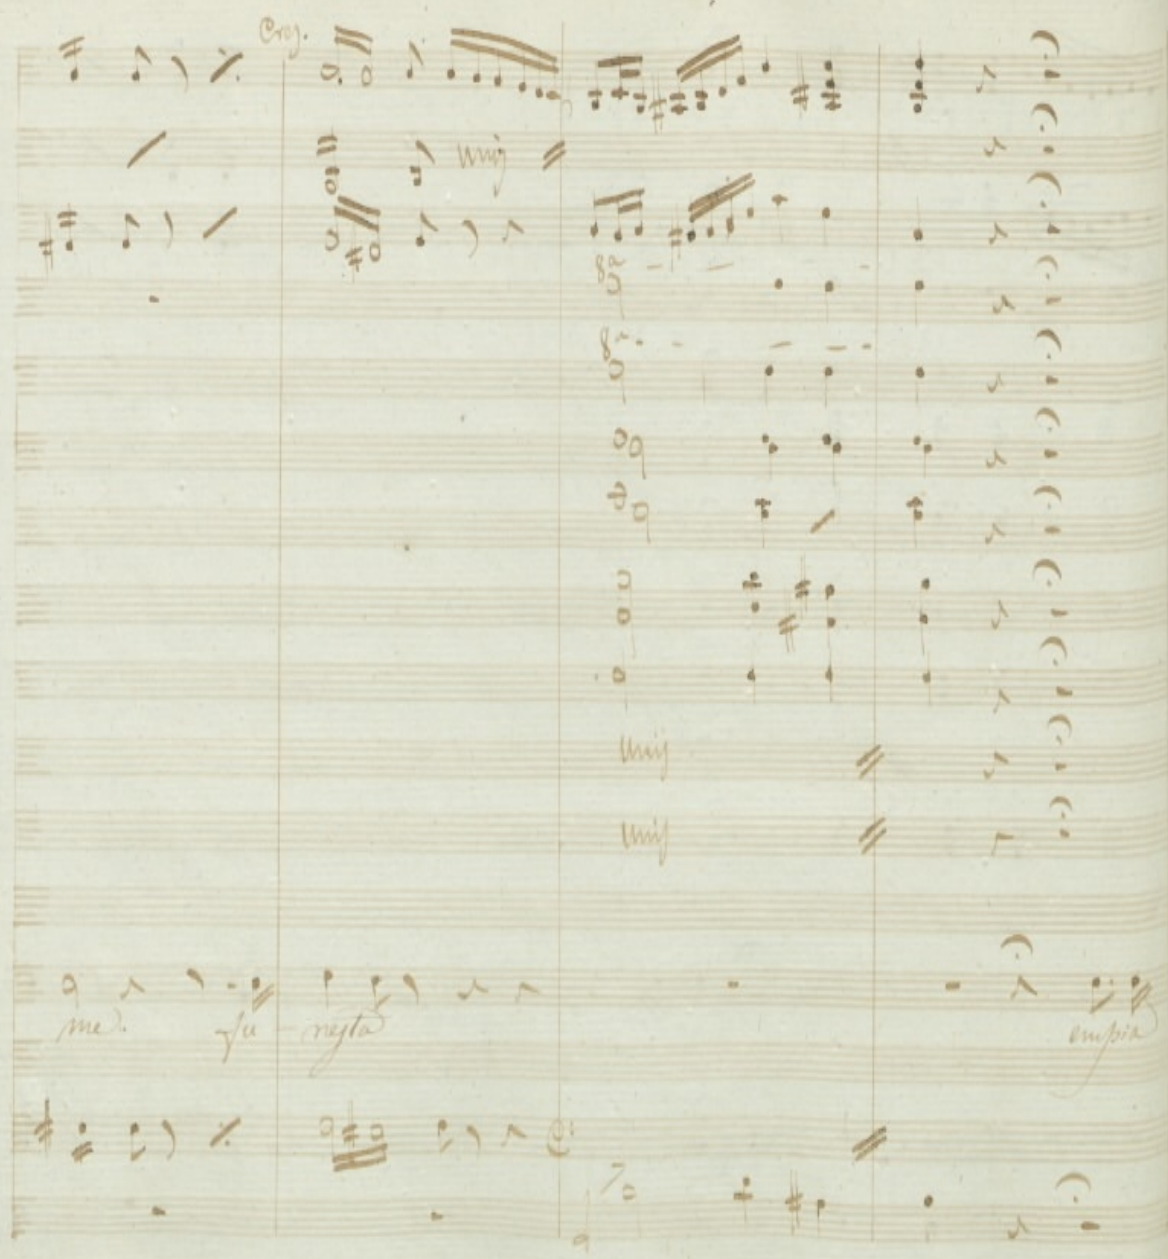 Cres.
Unis
8a
8a
Unis
Unis
me. fu nesta empia